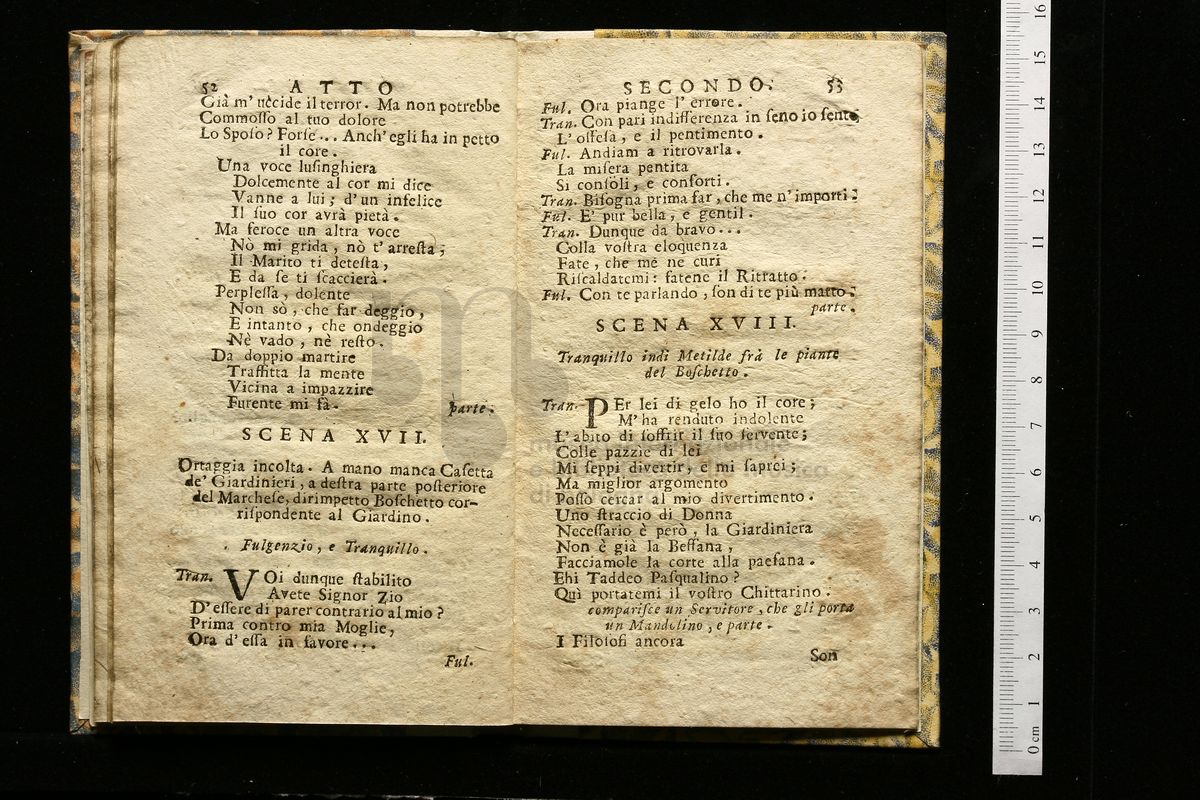 52 ATTO
Già m' uccide il terror. Ma non potrebbe
Commosso al tuo dolore
Lo Sposo? Forse... Anch' egli ha in petto
il core.
Una voce lusinghiera
Dolcemente al cor mi dice
Vanne a lui; d' un infelice
Il suo cor avrà pietà.
Ma feroce un altra voce
Nò mi grida, nò t' arresta;
Il Marito ti detesta,
E da se ti scaccierà.
Perplessa, dolente
Non sò, che far deggio,
E intanto, che ondeggio
Nè vado, nè resto.
Da doppio martire
Traffitta la mente
Vicina a impazzire
Furente mi fà. parte.
SCENA XVII.
Ortaggia incolta. A mano manca Casetta
de' Giardinieri, a destra parte posteriore
del Marchese, dirimpetto Boschetto cor-
rispondente al Giardino.
Fulgenzio, e Tranquillo.
Tran. VOi dunque stabilito
Avete Signor Zio
D' essere di parer contrario al mio?
Prima contro mia Moglie,
Ora d' essa in favore...
Ful.
SECONDO. 53
Ful. Ora piange l' errore.
Tran. Con pari indifferenza in seno io sento,
L' offesa, e il pentimento.
Ful. Andiam a ritrovarla.
La misera pentita
Si consoli, e conforti.
Tran. Bisogna prima far, che me n' importi.
Ful. E' pur bella, e gentil.
Tran. Dunque da bravo...
Colla vostra eloquenza
Fate, che me ne curi
Riscaldatemi: fatene il Ritratto.
Ful. Con te parlando, son di te più matto.
parte.
SCENA XVIII.
Tranquillo indi Metilde frà le piante
del Boschetto.
Tran. PEr lei di gelo ho il core;
M' ha renduto indolente
L' abito di soffrir il suo fervente;
Colle pazzie di lei
Mi seppi divertir, e mi saprei;
Ma miglior argomento
Posso cercar al mio divertimento.
Uno straccio di Donna
Necessario è però, la Giardiniera
Non è già la Beffana,
Facciamole la corte alla paesana.
Ehi Taddeo Pasqualino?
Quì portatemi il vostro Chittarino.
comparisce un Servitore, che gli porta
un Mandolino, e parte.
I Filosofi ancora
Son
0 cm 1 2 3 4 5 6 7 8 9 10 11 12 13 14 15 16